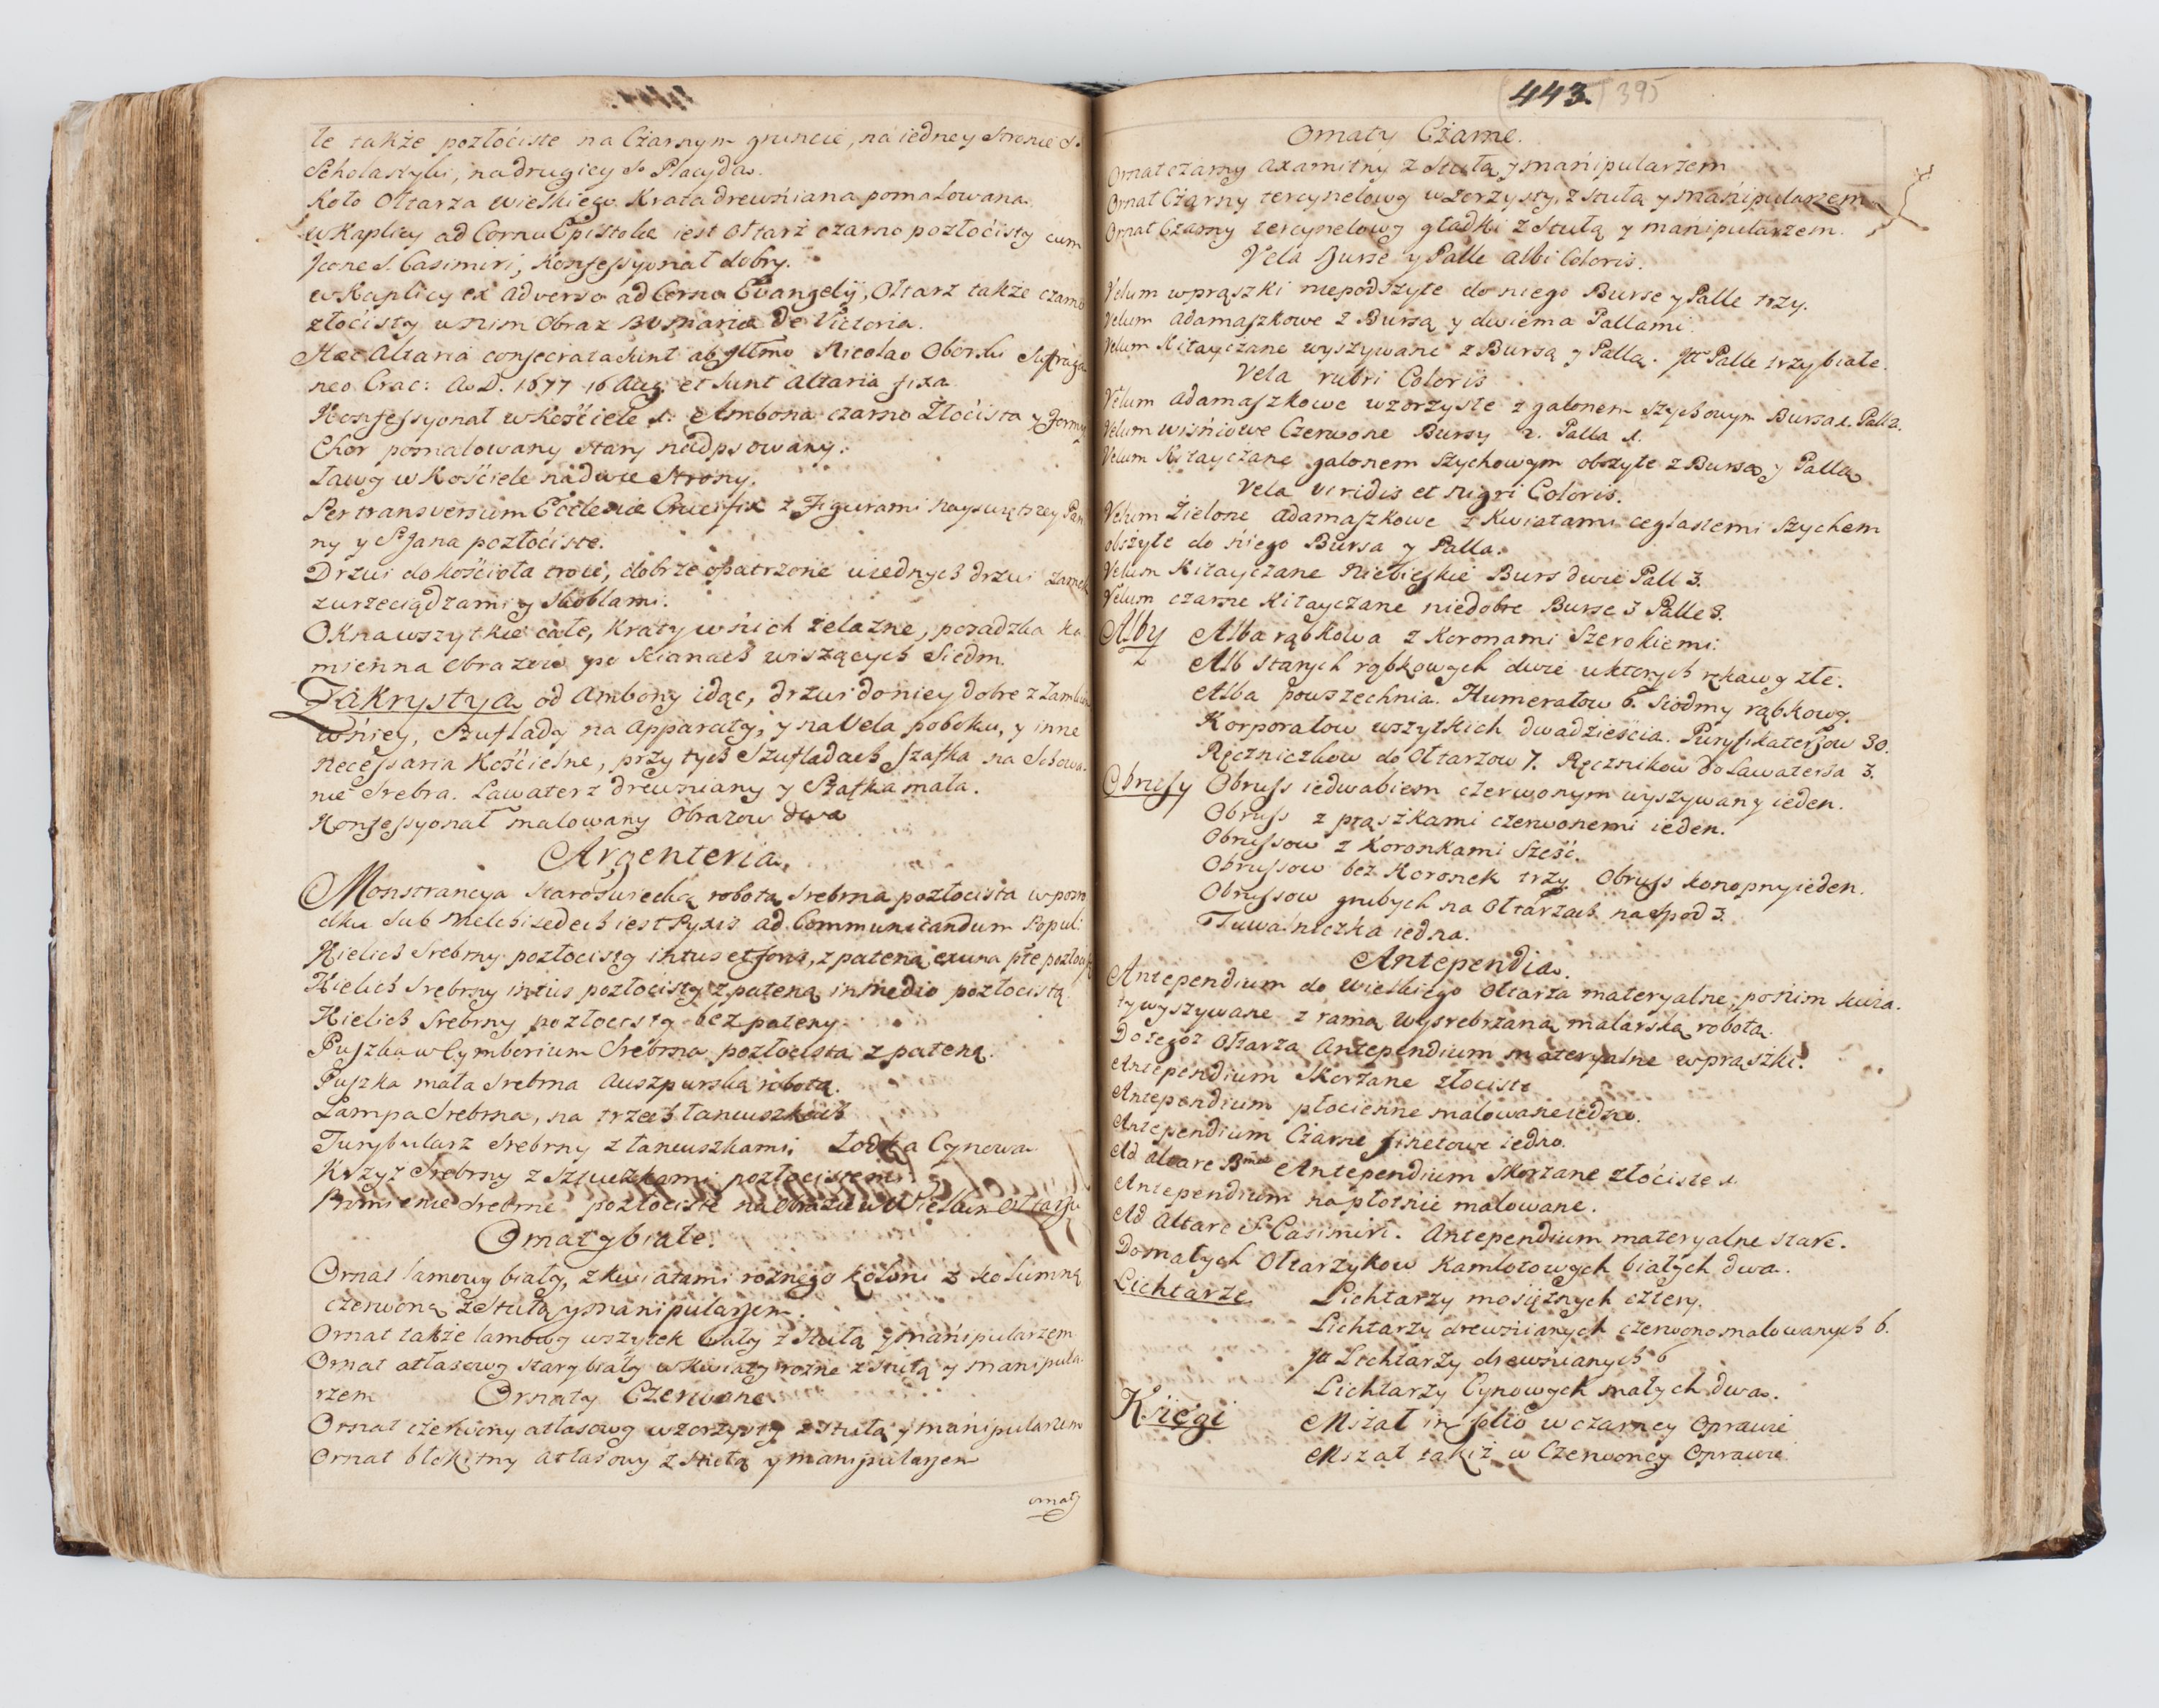 te także pozłociste na Czarnym gruncie, na iedney Stronie S.
Scholastyki, na drugiey S. Placyda.
Koło Ołtarza wielkiego Krata drewniana pomalowana.
w Kaplicy ad Cornu Epistolæ iest ołtarz czarno pozłocisty cum
Icone S. Casimiri, Konfessyonał dobry.
w Kaplicy ex adverso ad Cornu Evangelij, Ołtarz także czarno
złocisty w nim Obraz BV Mariæ De Victoria.
Hæc Altaria consecrata sunt ab Illmo Nicolao Oborski Sufraga
neo Crac: A.D. 1677 16 Aug: et sunt altaria fixa
Konfessyonał w Kościele 1. Ambona czarno Złocista y Formy
Chor pomalowany stary nadpsowany.
Ławy w Kościele na dwie Strony.
Per transversum Ecclesiæ Crucifix z Figurami Nayswiętszey Pan
ny y S. Jana pozłociste.
Drzwi do kościoła troie, dobrze opatrzone u iednych drzwi zamek
z wrzeciądzami y Skoblami.
Okna wszytkie całe, Kraty w nich żelazne, posadzka ka
mienna Obrazow po Scianach wiszących Siedm.
Zakrystya od Ambony idąc, drzwi do niey dobre z Zamkiem
w niey, Szuflady na Apparaty, y na Vela poboku, y inne
necessaria Kościelne, przy tych Szufladach Szafka na Schowa-
nie Srebra. Lawaterz drewniany y Szafka mała.
Konfessyonał malowany Obrazow dwa
Argenteria.
Monstrancya Staroświecką robotą Srebrna pozłocista w posrz
dku sub Melchizedech iest Pyxis ad Communicandum Popul:
Kielich Srebrny pozłocisty intus et foris, z pateną ex una pte pozłocist
Kielich Srebrny intus pozłocisty z pateną in medio pozłocistą
Kielich Srebrny pozłocisty bez pateny.
Puszka w Cymborium Srebrna pozłocista z pateną.
Puszka mała Srebrna Auszpurską robotą.
Lampa Srebrna, na trzech łancuszkach
Turybularz Srebrny z łancuszkami. Łodka Cynowa.
Krzyż Srebrny z sztuczkami pozłocistemi
Promienie Srebrne pozłociste na Obrazie w Wielkim Ołtarzu
Ornaty białe.
Ornat lamowy biały, z kwiatami rożnego koloru z kolumną
czerwoną z Stułą y manipularzem.
Ornat także lamowy wszytek biały z Stułą y manipularzem
Ornat atłasowy stary biały w kwiaty rożne z stułą y manipula-
rzem Ornaty Czerwone
Ornat czerwony atłasowy wzorzysty z stułą y manipularzem
Ornat błękitny atłasowy z stułą y manipularzem
ornaty
443. 395
Ornaty Czarne.
Ornat czarny axamitny z stułą y manipularzem
Ornat Czarny tercynelowy wzorzysty, z stułą y manipularzem
Ornat Czarny tercynelowy gładki z Stułą y manipularzem.
Vela Burse y Palle albi Coloris.
Velum w prąszki niepodszyte do niego Burse y Palle trzy.
Velum adamaszkowe z Bursą y dwiema Pallami.
Velum Kitayczane wyszywane z Bursą y Pallą. Itt Palle trzy białe.
Vela rubri Coloris
Velum adamaszkowe wzorzyste z galonem szychowym Bursa 1. Palla.
Velum wiśniowe Czerwone Bursy 2. Palla 1.
Velum Kitayczane galonem szychowym obszyte z Bursą y Pallą
Vela viridis et nigri Coloris.
Velum Zielone adamaszkowe z Kwiatami ceglastemi szychem
obszyte do niego Bursa y Palla.
Velum Kitayczane Niebieskie Burs dwie Pall 3.
Velum czarne Kitayczane niedobre Burse 3 Palle 3.
Alby Alba rąbkowa z Koronami Szerokiemi.
Alb starych rąbkowych dwie u ktorych rękawy złe.
Alba powszechnia. Humerałow 6. siodmy rąbkowy.
Korporałow wszytkich dwadzieścia. Puryfikaterzow 30.
Ręczniczkow do Ołtarzow 7. Ręcznikow do Lawaterza 3.
Obrusy Obruss iedwabiem czerwonym wyszywany ieden.
Obruss z prąszkami czerwonemi ieden.
Obrussow z Koronkami sześć.
Obrussow bez Koronek trzy Obruss konopny ieden.
Obrussow grubych na Ołtarzach na spod 3.
Tuwalniczka iedna.
Antependia.
Antependium do wielkiego Ołtarza materyalne, po nim kwia-
ty wyszywane z ramą wysrebrzaną malarską robotą.
Do tegoż Ołtarza Antependium materyalne w prąszki.
Antependium Skorzane złociste
Antependium płocienne malowane iedno.
Antependium Czarne finetowe iedno.
Ad altare Bmæ Antependium Skorzane złociste 1.
Antependium na płotnie malowane.
Ad Altare S. Casimiri. Antependium materyalne stare.
Do małych Ołtarzykow Kamlotowych białych dwa.
Lichtarze Lichtarzy mosiężnych cztery.
Lichtarzy drewnianych czerwono malowanych 6.
Itt Lichtarzy drewnianych 6
Lichtarzy Cynowych małych dwa.
Księgi Mszał in folio w czarney Oprawie
Mszał takiż w Czerwoney Oprawie